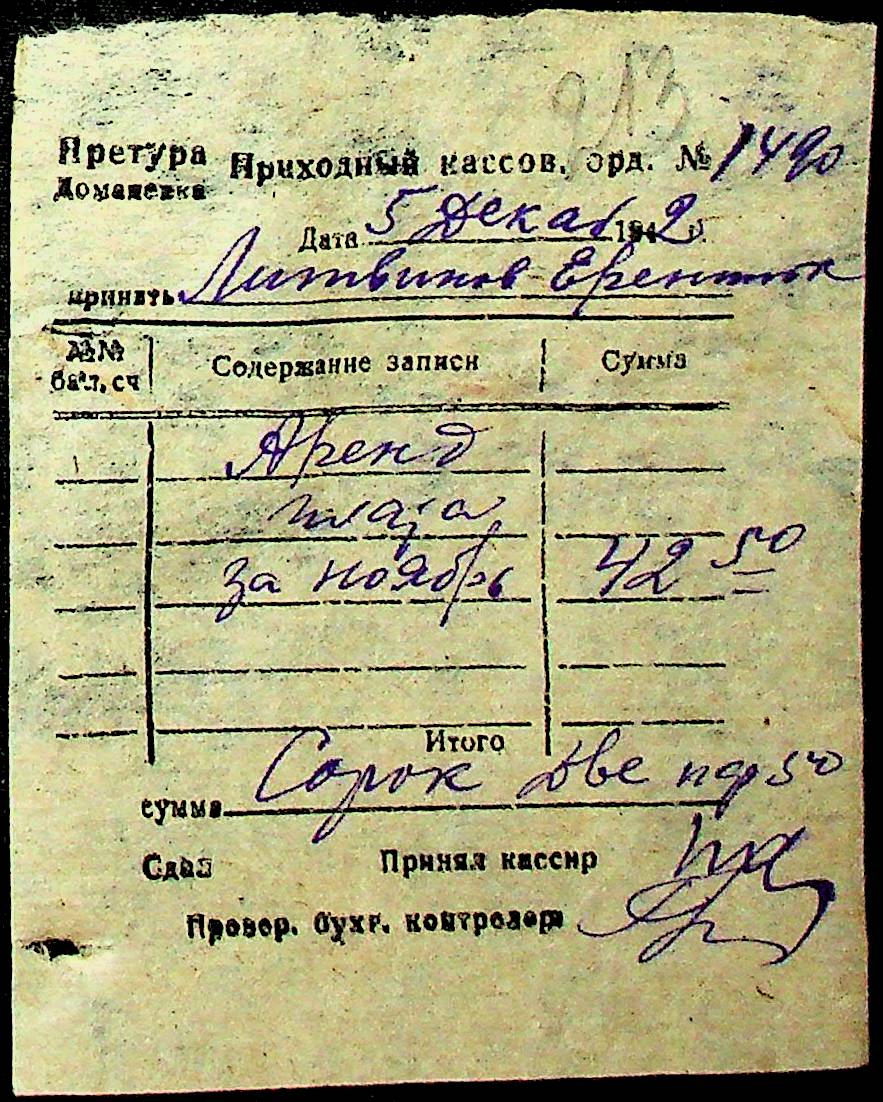 213
Претура Приходный кассов. орд. № 1490
Доманевка
Дата 5 Декаб 1942 г.
принять Литвинов
№№ бал. сч Содержание записи Сумма
Аренд
плата
за ноябрь 42 50
Итого
сумма Сорок две 50
Сдал Принял кассир
Провер. бухг. контролер